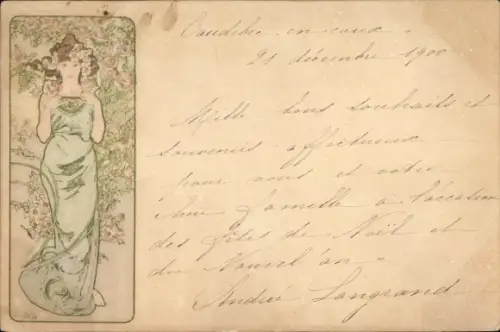 Caudebec en caux -
21 décembre 1900
Mille bons souhaits et
souvenirs affectueux
pour vous et votre
chère famille a l'occasion
des fêtes de Noël et
du Nouvel an -
André Longrand